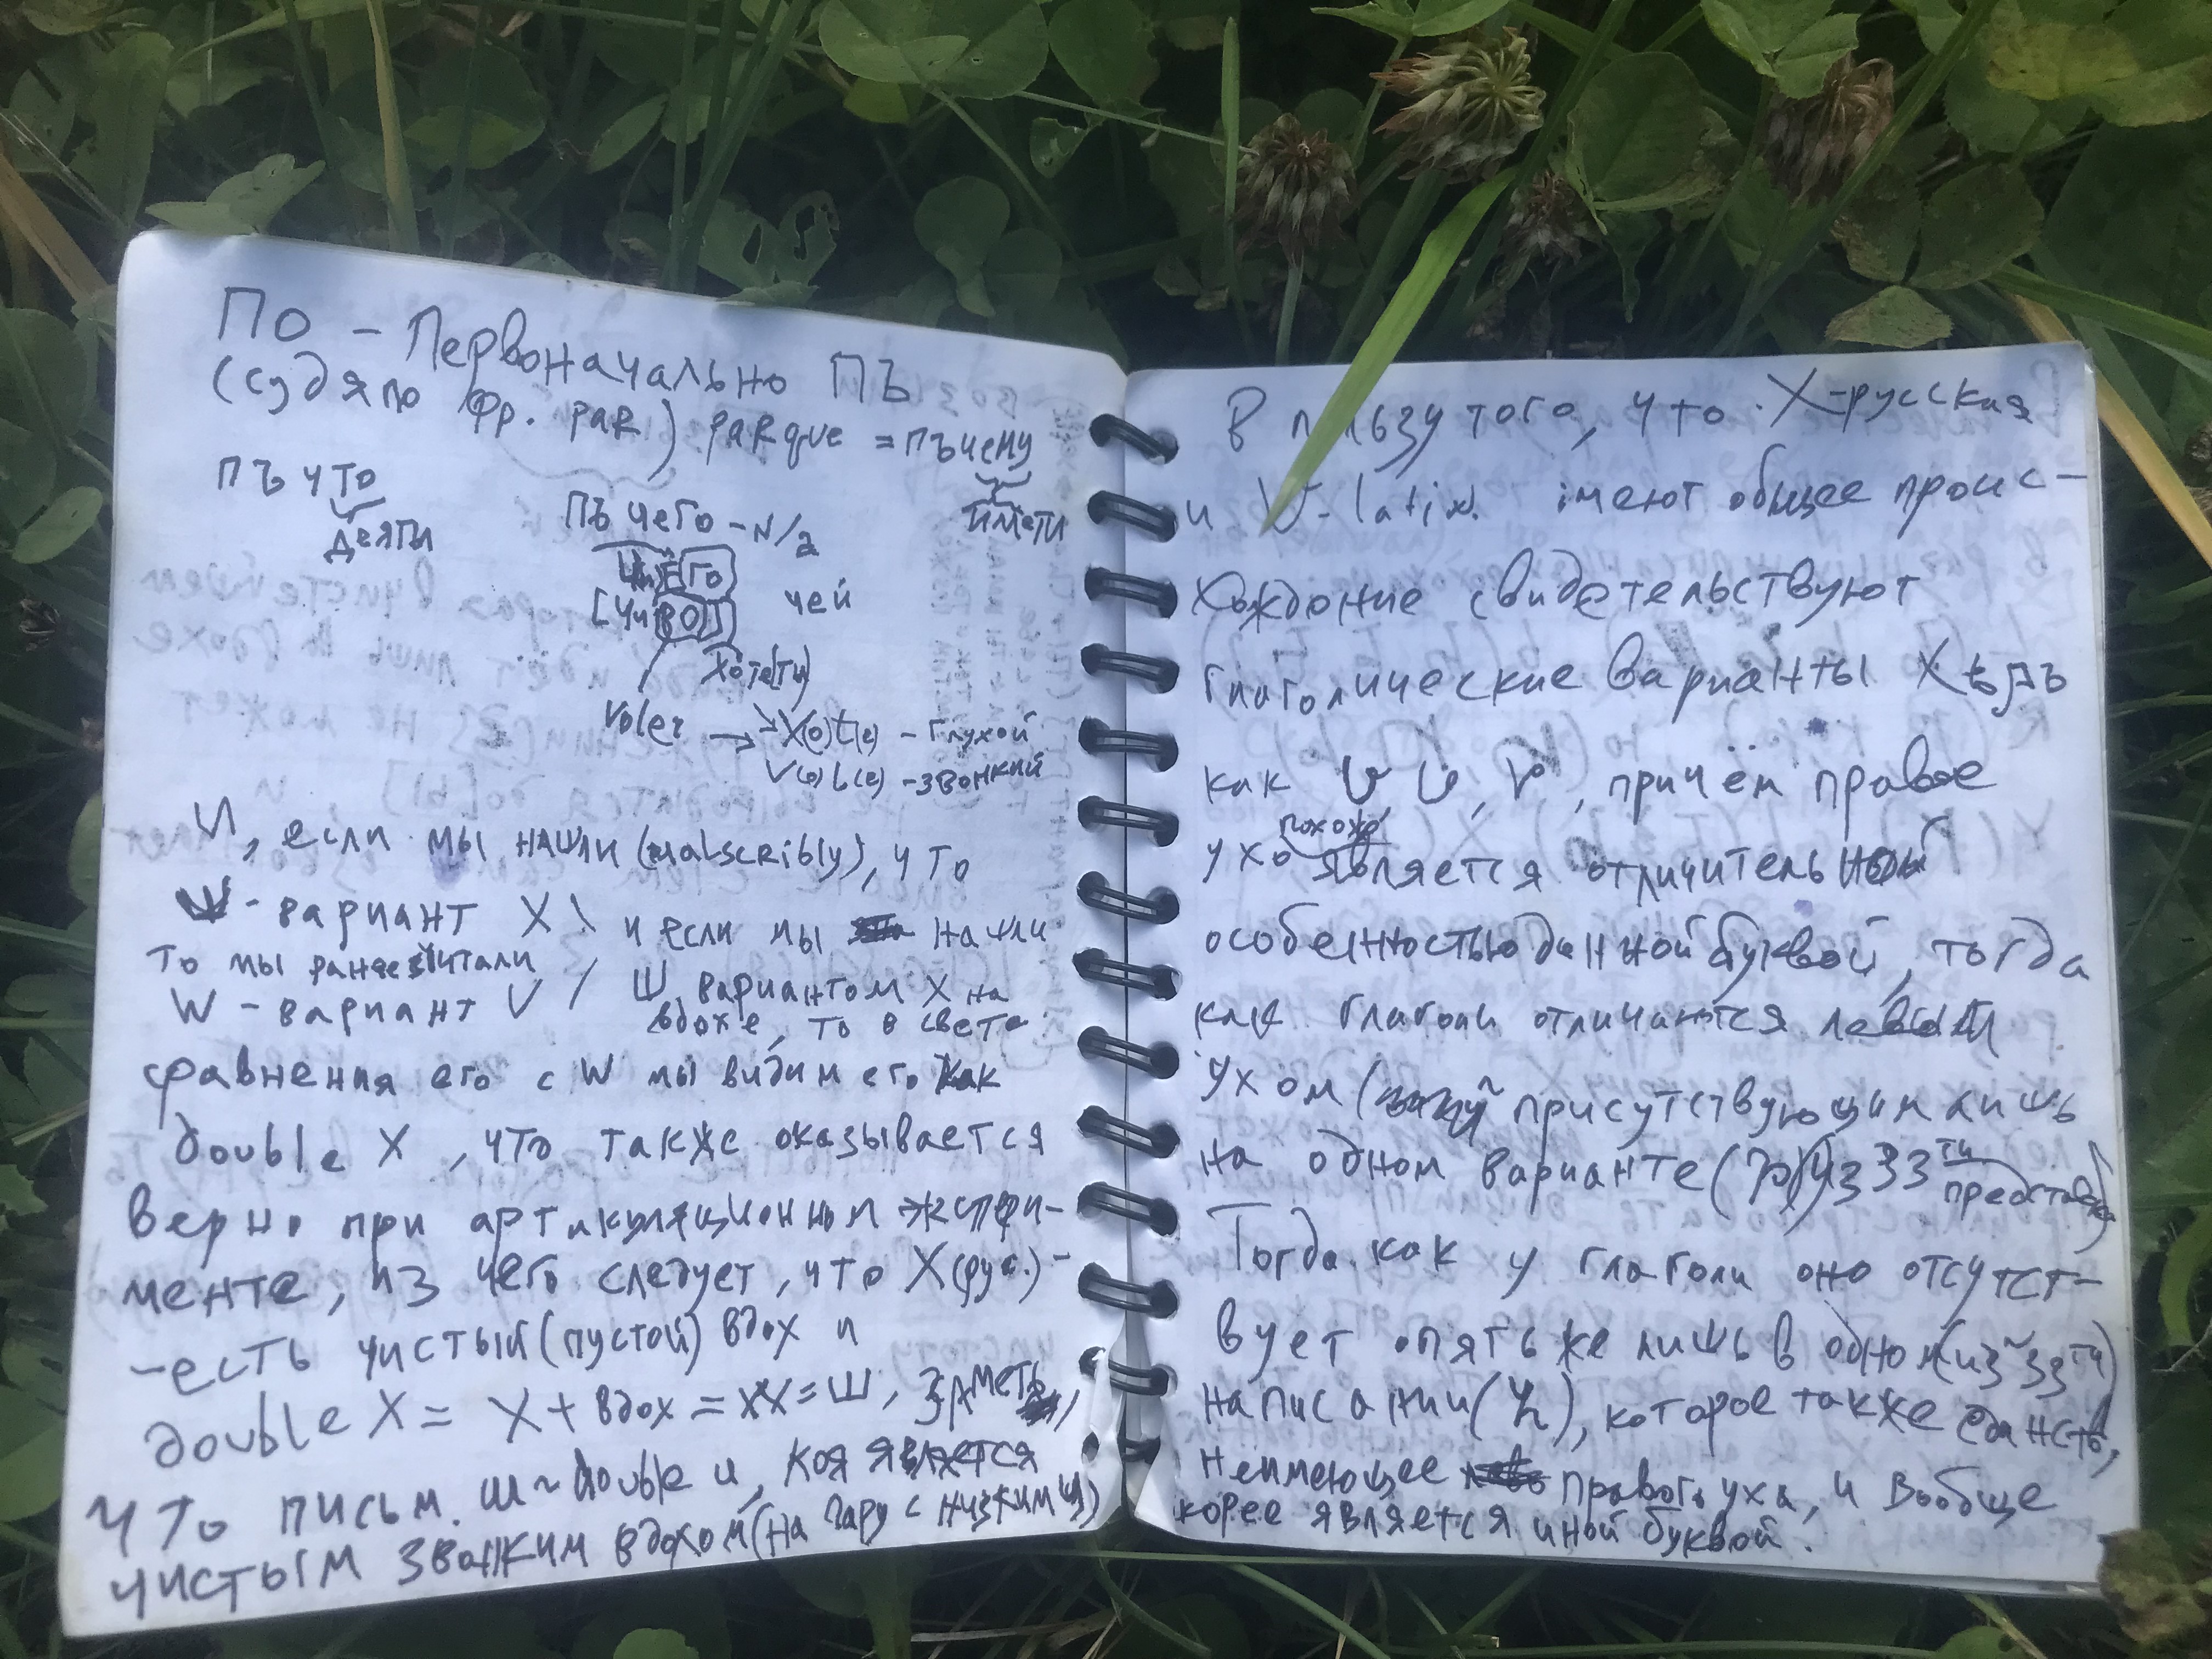 ПО - Первоначально ПЪ
(судя по фр. PAR) PARque = пъчему
пъ что Пъ чего - N/2 тимети
деяти чей
[ЧиВО]
хоте(ти)
Vo(e) → X(o)L(e) - глухой
V(o)L(e) - звонкий
И, если мы нашли (malscribly), что
- вариант X и если мы начли
то мы ранее считали Ш вариантом X на
W - вариант V вдохе, то в свете
сравнения его с W мы видим его как
double X, что также оказывается
верно при артикуляционном экспри-
менте, из чего следует, что X(рус.) -
- есть чистый (пустой) вдох и
double X = X + вдох = XX = Ш, заметь,
что письм. ш ~ double и, коя является
чистым звонким вдохом (на пару с низким ы)
В пользу того, что X-русская
и V-latin. имеют общее проис-
хождение свидетельствуют
глаголические варианты
как , причём правое
ухо похоже является отличительной
особенностью данной буквой, тогда
как глаголи отличается левым
ухом присутствующим лишь
на одном варианте (из 33ти представ)
Тогда как у глаголи оно отсутст-
вует опять же лишь в одном (из 33ти)
написании, которое также единств,
неимеющее правого уха, и вообще
корее является иной буквой.